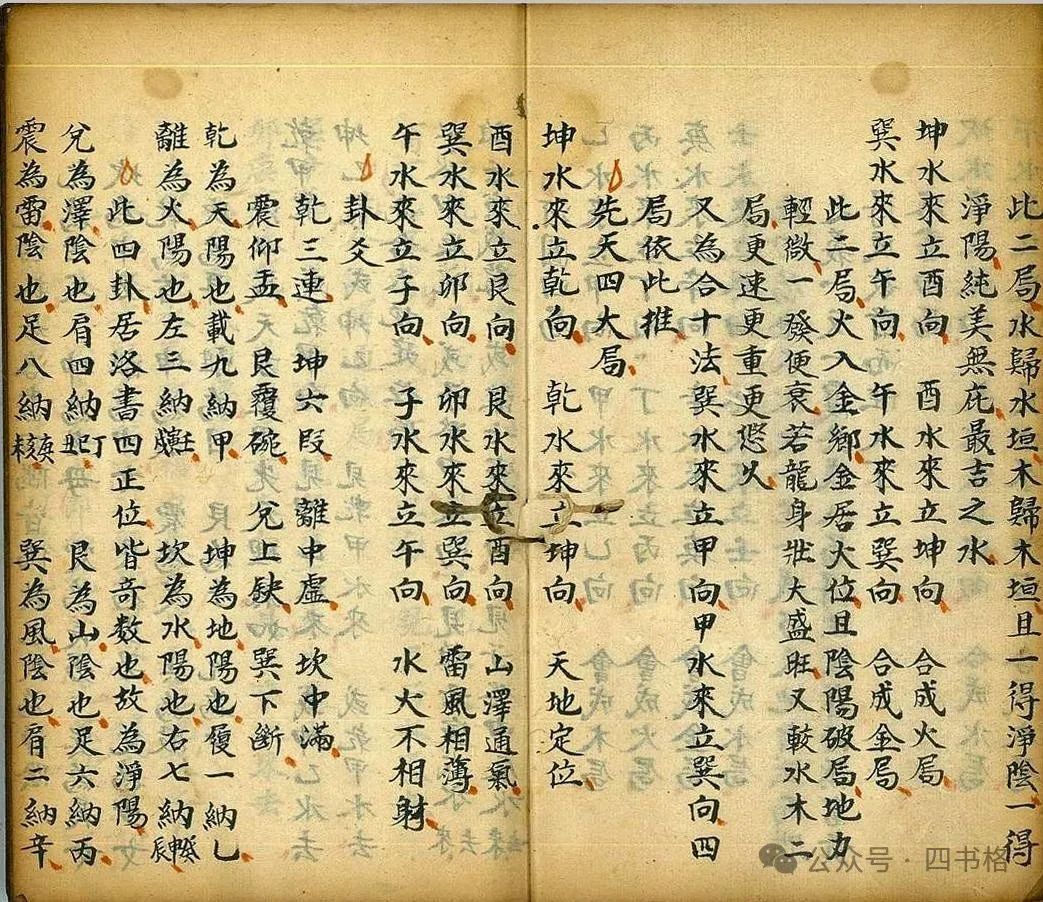 此二局水歸水垣木歸木垣且一得淨陰一得
淨陽純美無庇最吉之水
坤水來立酉向 酉水來立坤向 合成火局
巽水來立午向 午水來立巽向 合成金局
此二局火入金鄉金居火位且陰陽破局地力
輕微一發便衰若龍身壯大盛旺又較水木二
局更速更重更悠久
又為合十法巽水來立甲向甲水來立巽向四
局依此推
先天四大局
坤水來立乾向 乾水來立坤向 天地定位
酉水來立艮向 艮水來立酉向 山澤通氣
巽水來立卯向 卯水來立巽向 雷風相薄
午水來立子向 子水來立午向 水火不相射
卦爻
乾三連 坤六段 離中虛 坎中滿
震仰盂 艮覆碗 兌上缺 巽下斷
乾為天陽也載九納甲 坤為地陽也履一納乙
離為火陽也左三納壬寅戌 坎為水陽也右七納癸申辰
此四卦居洛書四正位皆奇數也故為淨陽
兌為澤陰也肩四納丁巳丑 艮為山陰也足六納丙
震為雷陰也足八納庚亥未 巽為風陰也肩二納辛
公众号·四书格